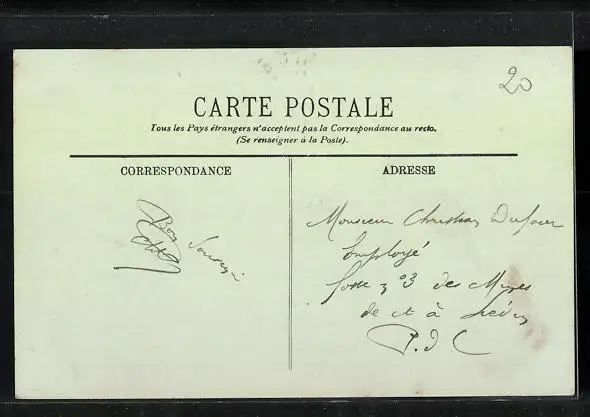 20
CARTE POSTALE
Tous les Pays étrangers n'acceptent pas la Correspondance au recto.
(Se renseigner à la Poste).
CORRESPONDANCE
ADRESSE
Bon Souvenir
Monsieur Christian Dufour
Employé
fosse n°3 des Mines
de et à Liévin
P. d C